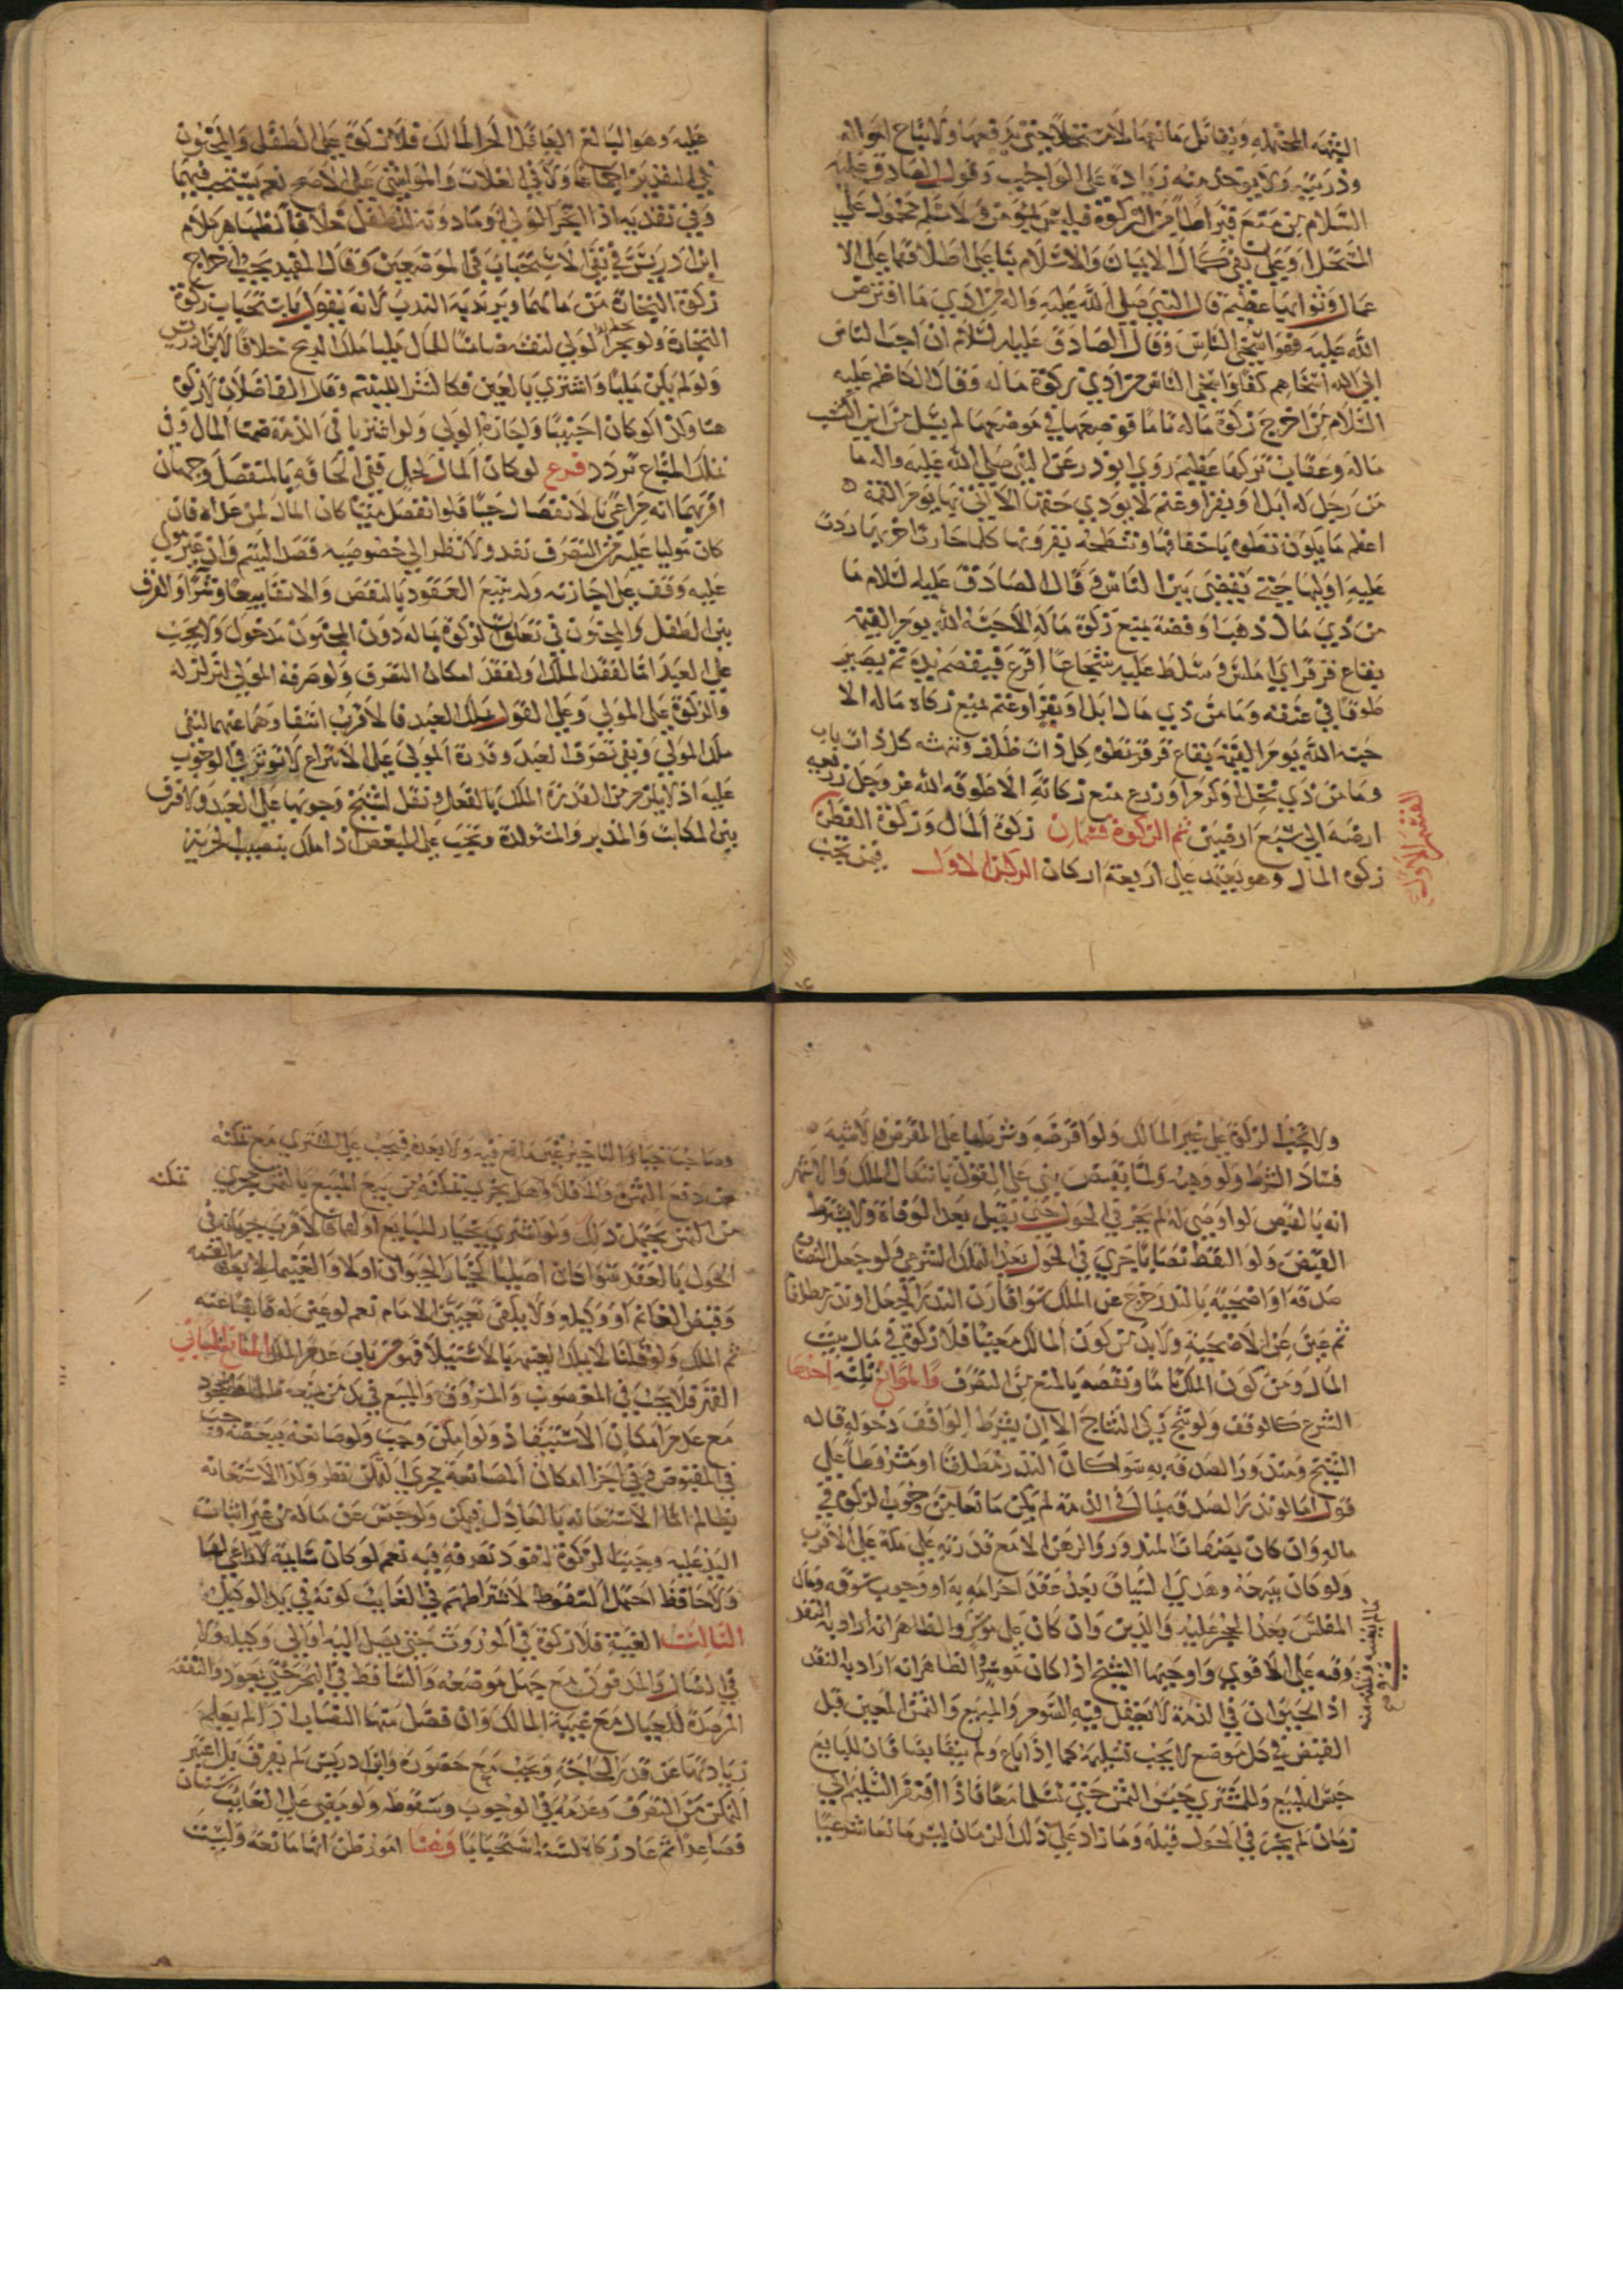 الشبهه المحتمله ويقاتل مانعها لا مستحلا حتى يدفعها ولا يباح امواله
وذريته ولا يوخذ منه زيادة على الواجب وقول الصادق عليه
السلام من منع قيراطا من الزكوة فليس بمؤمن ولا مسلم محمول على
المستحل او على نفي كمال الايمان والاسلام بنا على اطلاقهما على الا
عمال وثوابها عظيم قال النبي صلى الله عليه واله من ادي ما افترض
الله عليه فهو اسخى الناس وقال الصادق عليه لسلام ان احب الناس
الى الله اسخاهم كفا واسخى الناس من ادي زكوة ماله وقال الكاظم عليه
السلام من اخرج زكوة ماله تاما فوضعها في موضعها لم يسل من اين اكتسب
ماله وعقاب تركها عظيم روى ابوذر عن النبي صلى الله عليه واله ما
من رجل له ابل او بقر او غنم لا يودي حقها الا اتى بها يوم القيمة
اعظم ما يكون تطوه باخفافها وتنطحه بقرونها كلما جازت اخريها ردت
عليه اوليها حتى يقضى بين الناس وقال الصادق عليه لسلام ما
من ذي مال ذهب او فضة يمنع زكوة ماله الا حبسه الله يوم القيمة
بقاع قرقر اي املس وسلط عليه شجاعا اقرع فيقضم يده ثم يصير
طوقا في عنقه وما من ذي مال ابل او بقر او غنم يمنع زكاة ماله الا
حبسه الله يوم القيمة بقاع قرقر تطوه كل ذات ظلف وتنهشه كل ذات ناب
وما من ذي نخل او كرم او زرع منع زكاته الا طوقه الله عز وجل ريعة
ارضه الى سبع ارضين ثم الزكوة قسمان زكوة المال وزكوة الفطرة
القسم الاول
زكوه المال وهو يعتمد على اربعة اركان الركن الاول فيمن تجب
عليه وهو البالغ العاقل الحر المالك فلا زكوة على الطفل والمجنون
في النقدين اجماعا ولا في الغلات والمواشي على الاصح نعم يستحب فيهما
وفي نقديه اذا اتجر الولي او ماذونه للطفل خلافا لظاهر كلام
ابن ادريس في نفي الاستحباب في الموضعين وقال المفيد يجب اخراج
زكوة التجارة من مالهما ويريد به الندب لانه يقول باستحباب زكوة
التجارة ولو تجر الولي لنفسه ضامنا للمال مليا ملك الربح خلافا لابن ادريس
ولو لم يكن مليا واشترى بالعين فكالشرا لليتيم وقال الفاضلان لا زكوة
هنا وكذا لو كان اجنبيا واجازه الولي ولو اشتريا في الذمة ضمنا المال وفي
تملك المبتاع تردد فرع لو كان المال لحمل ففي الحاقه بالمنفصل وجهان
اقربهما انه مراعى بالانفصال حيا فلو انفصل ميتا كان المال لمن عداه فان
كان موليا عليه من التصرف نفد ولا نظر الى خصوصيه قصد اليتيم وان غير مولى
عليه وقف على اجازته وله تتبع العقود بالنقص والابقا بيعا وشرا والفرق
بين الطفل والمجنون في تعلق الزكوة بماله دون المجنون مدخول ولا يجب
على العبد اما لفقد الملك او لفقد امكان التصرف ولو صرفه المولى لم نزله
والزكوة على المولى وعلى القول بملك العبد فالاقرب انتفاوهما عنهما لنفي
ملك المولى ونفي تصرف العبد وقدرة المولى على الانتزاع لا توثر في الوجوب
عليه اذ لا يلزم من القدرة الملك بالفعل ونقل الشيخ وجوبها على العبد ولا فرق
بين المكاتب والمدبر والمستولدة وتجب على المبعض اذا ملك بنصيب الحرية
ولا تجب الزكوة على غير المالك ولو اقرضه وشرطها على المقرض فالاشبه
فساد الشرط ولو وهبه ولما يقبض بني على القول بانتقال الملك والاشهر
انه بالقبض ولو اوصى له لم يجر في الحول حتى يقبل بعد الوفاة ولا يشترط
القبض ولو التقط نصابا جرى في الحول بعد التملك الشرعي ولو جعل النصاب
صدقة او اضحية بالنذر خرج عن الملك سوا قارن النذر الجعل او نذر مطلقا
ثم عين عن الاضحية ولا بد من كون المالك معينا فلا زكوة في مال بيت
المال ومن كون الملك تاما ونقصه بالمنع من التصرف والموانع ثلثه احدها
الشرع كالوقف ولو نتج زكى النتاج الا ان يشترط الواقف دخوله قاله
الشيخ ومنذور الصدقه به سوا كان النذر مطلقا او مشروطا على
قول اما لو نذر الصدقه بمال في الذمة لم يكن مانعا من وجوب الزكوة في
ماله وان كان بصفات المنذور والرهن الا مع قدرته على فكه على الاقرب
ولو كان ببرجه وهدي السياق بعد عقد احرامه به او وجوب سوقه ومال
المفلس بعد الحجر عليه والدين وان كان على موسر والظاهر انه اراد به النقد
وفيه على الاقوى واوجبها الشيخ اذا كان موسرا الظاهر انه اراد به النقد
اذ الحيوان في الذمة لا يعقل فيه السوم والمبيع والثمن المعين قبل
القبض في كل موضع لا يجب تسليمه كما اذا باع ولم يتقابضا فان للبايع
حبس المبيع وللمشتري حبس الثمن حتى يتسلما معا فاذا افتقر التسليم الى
زمان لم يجر في الحول قبله وما زاد على ذلك الزمان ليس مانعا شرعيا
وصاحب خيار التاخير غير مانع فيه ولا بعده فيجب على المشتري مع تمكنه
من دفع الثمن والا فلا وهل يجري تمكنه من بيع المبيع بالثمن مجرى تمكنه
من الثمن يحتمل ذلك ولو اشترى بخيار للبايع او لهما فالاقرب جريانه في
الحول بالعقد سوا كان اصليا كخيار الحيوان او لا والغنيمة لا بعد القسمه
وقبض الغانم او وكيله ولا يكفي تعيين الامام نعم لو عين له قابضا عنه
ثم الملك ولو قلنا لا يملك الغنيمه بالاستيلا فهو من باب عدم الملك المانع الثاني
القهر فلا يجب في المغصوب والمسروق والمبيع في يد من يمنعه ظلما المجحود
مع عدم امكان الاستنقاذ ولو امكن وجب ولو صانعه ببعضه وجب
في المقبوض وفي اجزا امكان المصانعة مجرى التمكن نظر وكذا الاستعانه
بظالم اما الاستعانه بالعادل فتمكن ولو حبس عن ماله من غير اثبات
اليد عليه وجبت الزكوة لنفود تصرفه فيه نعم لو كان سائبة لا راعي لها
ولا حافظ احتمل السقوط لاشتراطهم في الغايب كونه في يد الوكيل
الثالث الغيبة فلا زكوة في الموروث حتى يصل اليه او الى وكيله ولا
في الضال والمدفون مع جهل موضعه والساقط في البحر حتى يعود والنفقه
المرصدة للعيال مع غيبة المالك وان فضل منها النصاب اذ لم يعلم
زيادتها عن قدر الحاجة وتجب مع حضوره وابن ادريس لم يفرق بل اعتبر
التمكن من التصرف وعدمه في الوجوب وسقوطه ولو مضى على الغايب سنتان
فصاعدا ثم عاد زكاه لسنة استحبابا وهنا امور ظن انها مانعه وليست